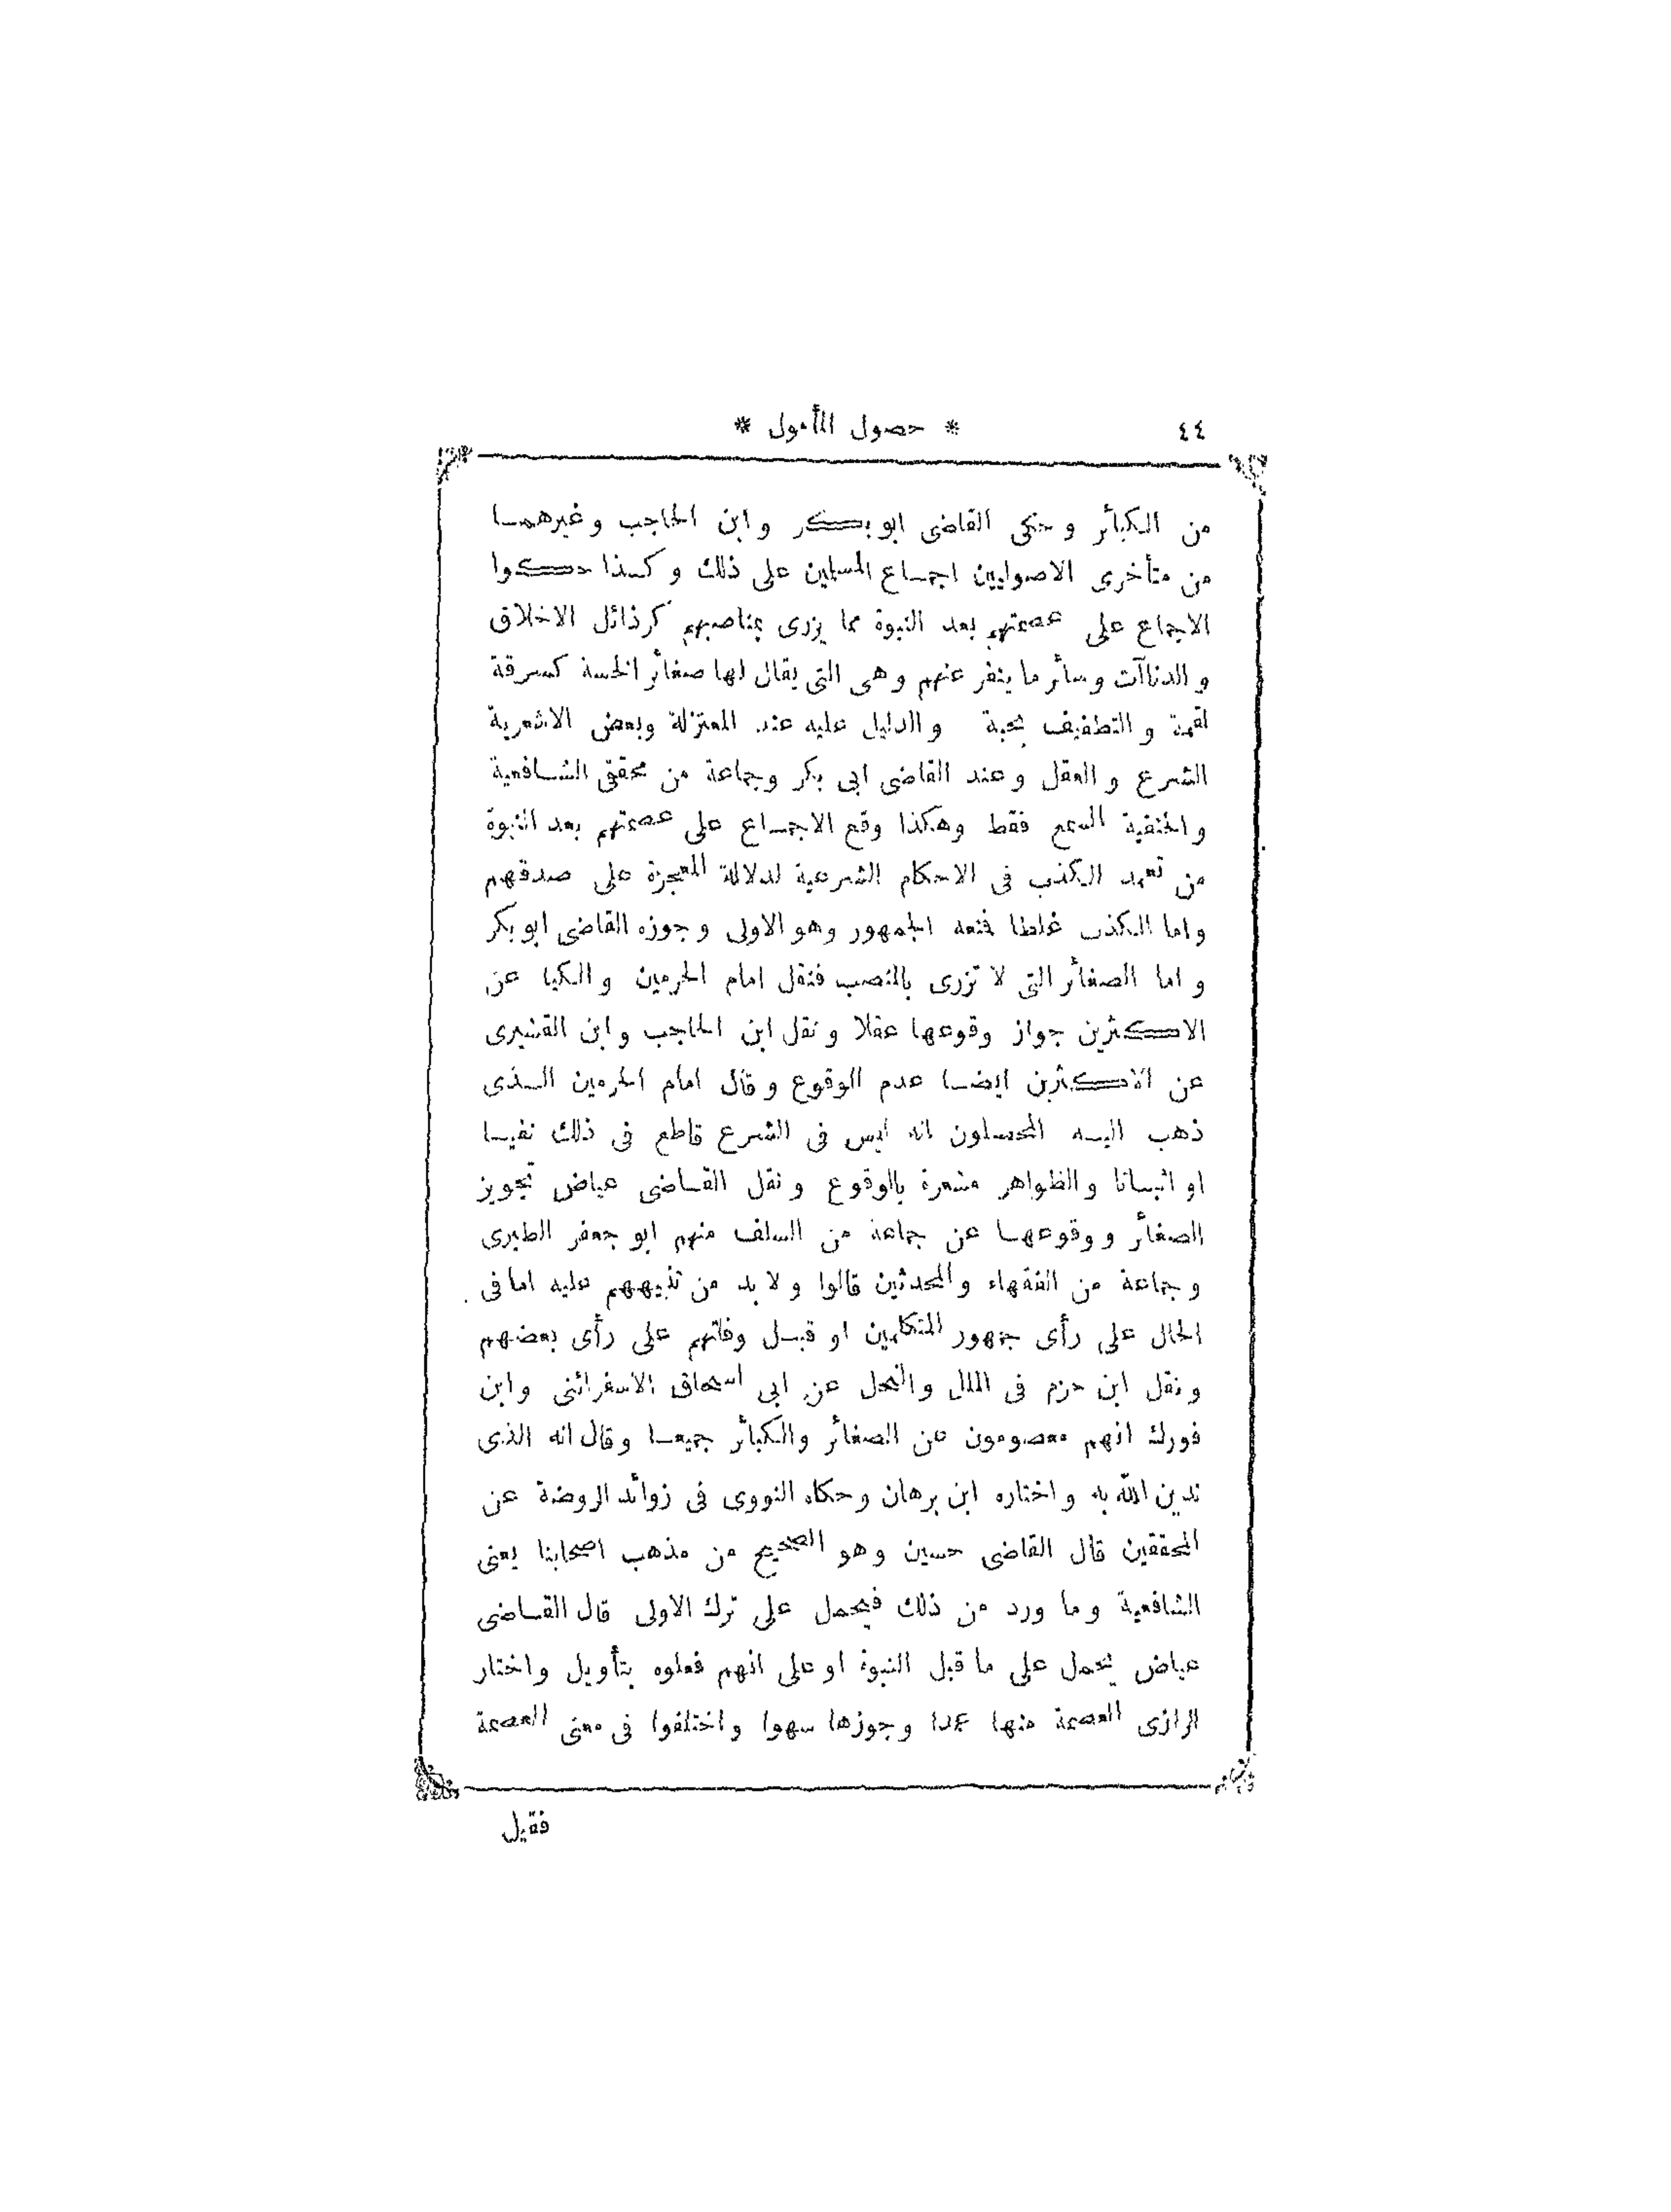 ٤٤ * حصول المأمول *
من الكبائر وحكى القاضى ابو بكر وابن الحاجب وغيرهما
من متأخرى الاصوليين اجماع المسلمين على ذلك وكذا حكوا
الاجماع على عصمتهم بعد النبوة مما يزرى بمناصبهم كرذائل الاخلاق
والدناآت وسائر ما ينفر عنهم وهى التى يقال لها صغائر الخسة كسرقة
لقمة والتطفيف بحبة والدليل عليه عند المعتزلة وبعض الاشعرية
الشرع والعقل وعند القاضى ابى بكر وجماعة من محققى الشافعية
والحنفية السمع فقط وهكذا وقع الاجماع على عصمتهم بعد النبوة
من تعمد الكذب فى الاحكام الشرعية لدلالة المعجزة على صدقهم
واما الكذب غلطا فمنعه الجمهور وهو الاولى وجوزه القاضى ابو بكر
واما الصغائر التى لا تزرى بالمنصب فنقل امام الحرمين والكيا عن
الاكثرين جواز وقوعها عقلا ونقل ابن الحاجب وابن القشيرى
عن الاكثرين ايضا عدم الوقوع وقال امام الحرمين الذى
ذهب اليه المحصلون انه ليس فى الشرع قاطع فى ذلك نفيا
او اثباتا والظواهر مشعرة بالوقوع ونقل القاضى عياض تجويز
الصغائر ووقوعها عن جماعة من السلف منهم ابو جعفر الطبرى
وجماعة من الفقهاء والمحدثين قالوا ولا بد من تنبيههم عليه اما فى
الحال على رأى جمهور المتكلمين او قبل وفاتهم على رأى بعضهم
ونقل ابن حزم فى الملل والنحل عن ابى اسحاق الاسفرائنى وابن
فورك انهم معصومون عن الصغائر والكبائر جميعا وقال انه الذى
ندين الله به واختاره ابن برهان وحكاه النووى فى زوائد الروضة عن
المحققين قال القاضى حسين وهو الصحيح من مذهب اصحابنا يعنى
الشافعية وما ورد من ذلك فيحمل على ترك الاولى قال القاضى
عياض يحمل على ما قبل النبوة او على انهم فعلوه بتأويل واختار
الرازى العصمة منها عمدا وجوزها سهوا واختلفوا فى معنى العصمة
فقيل